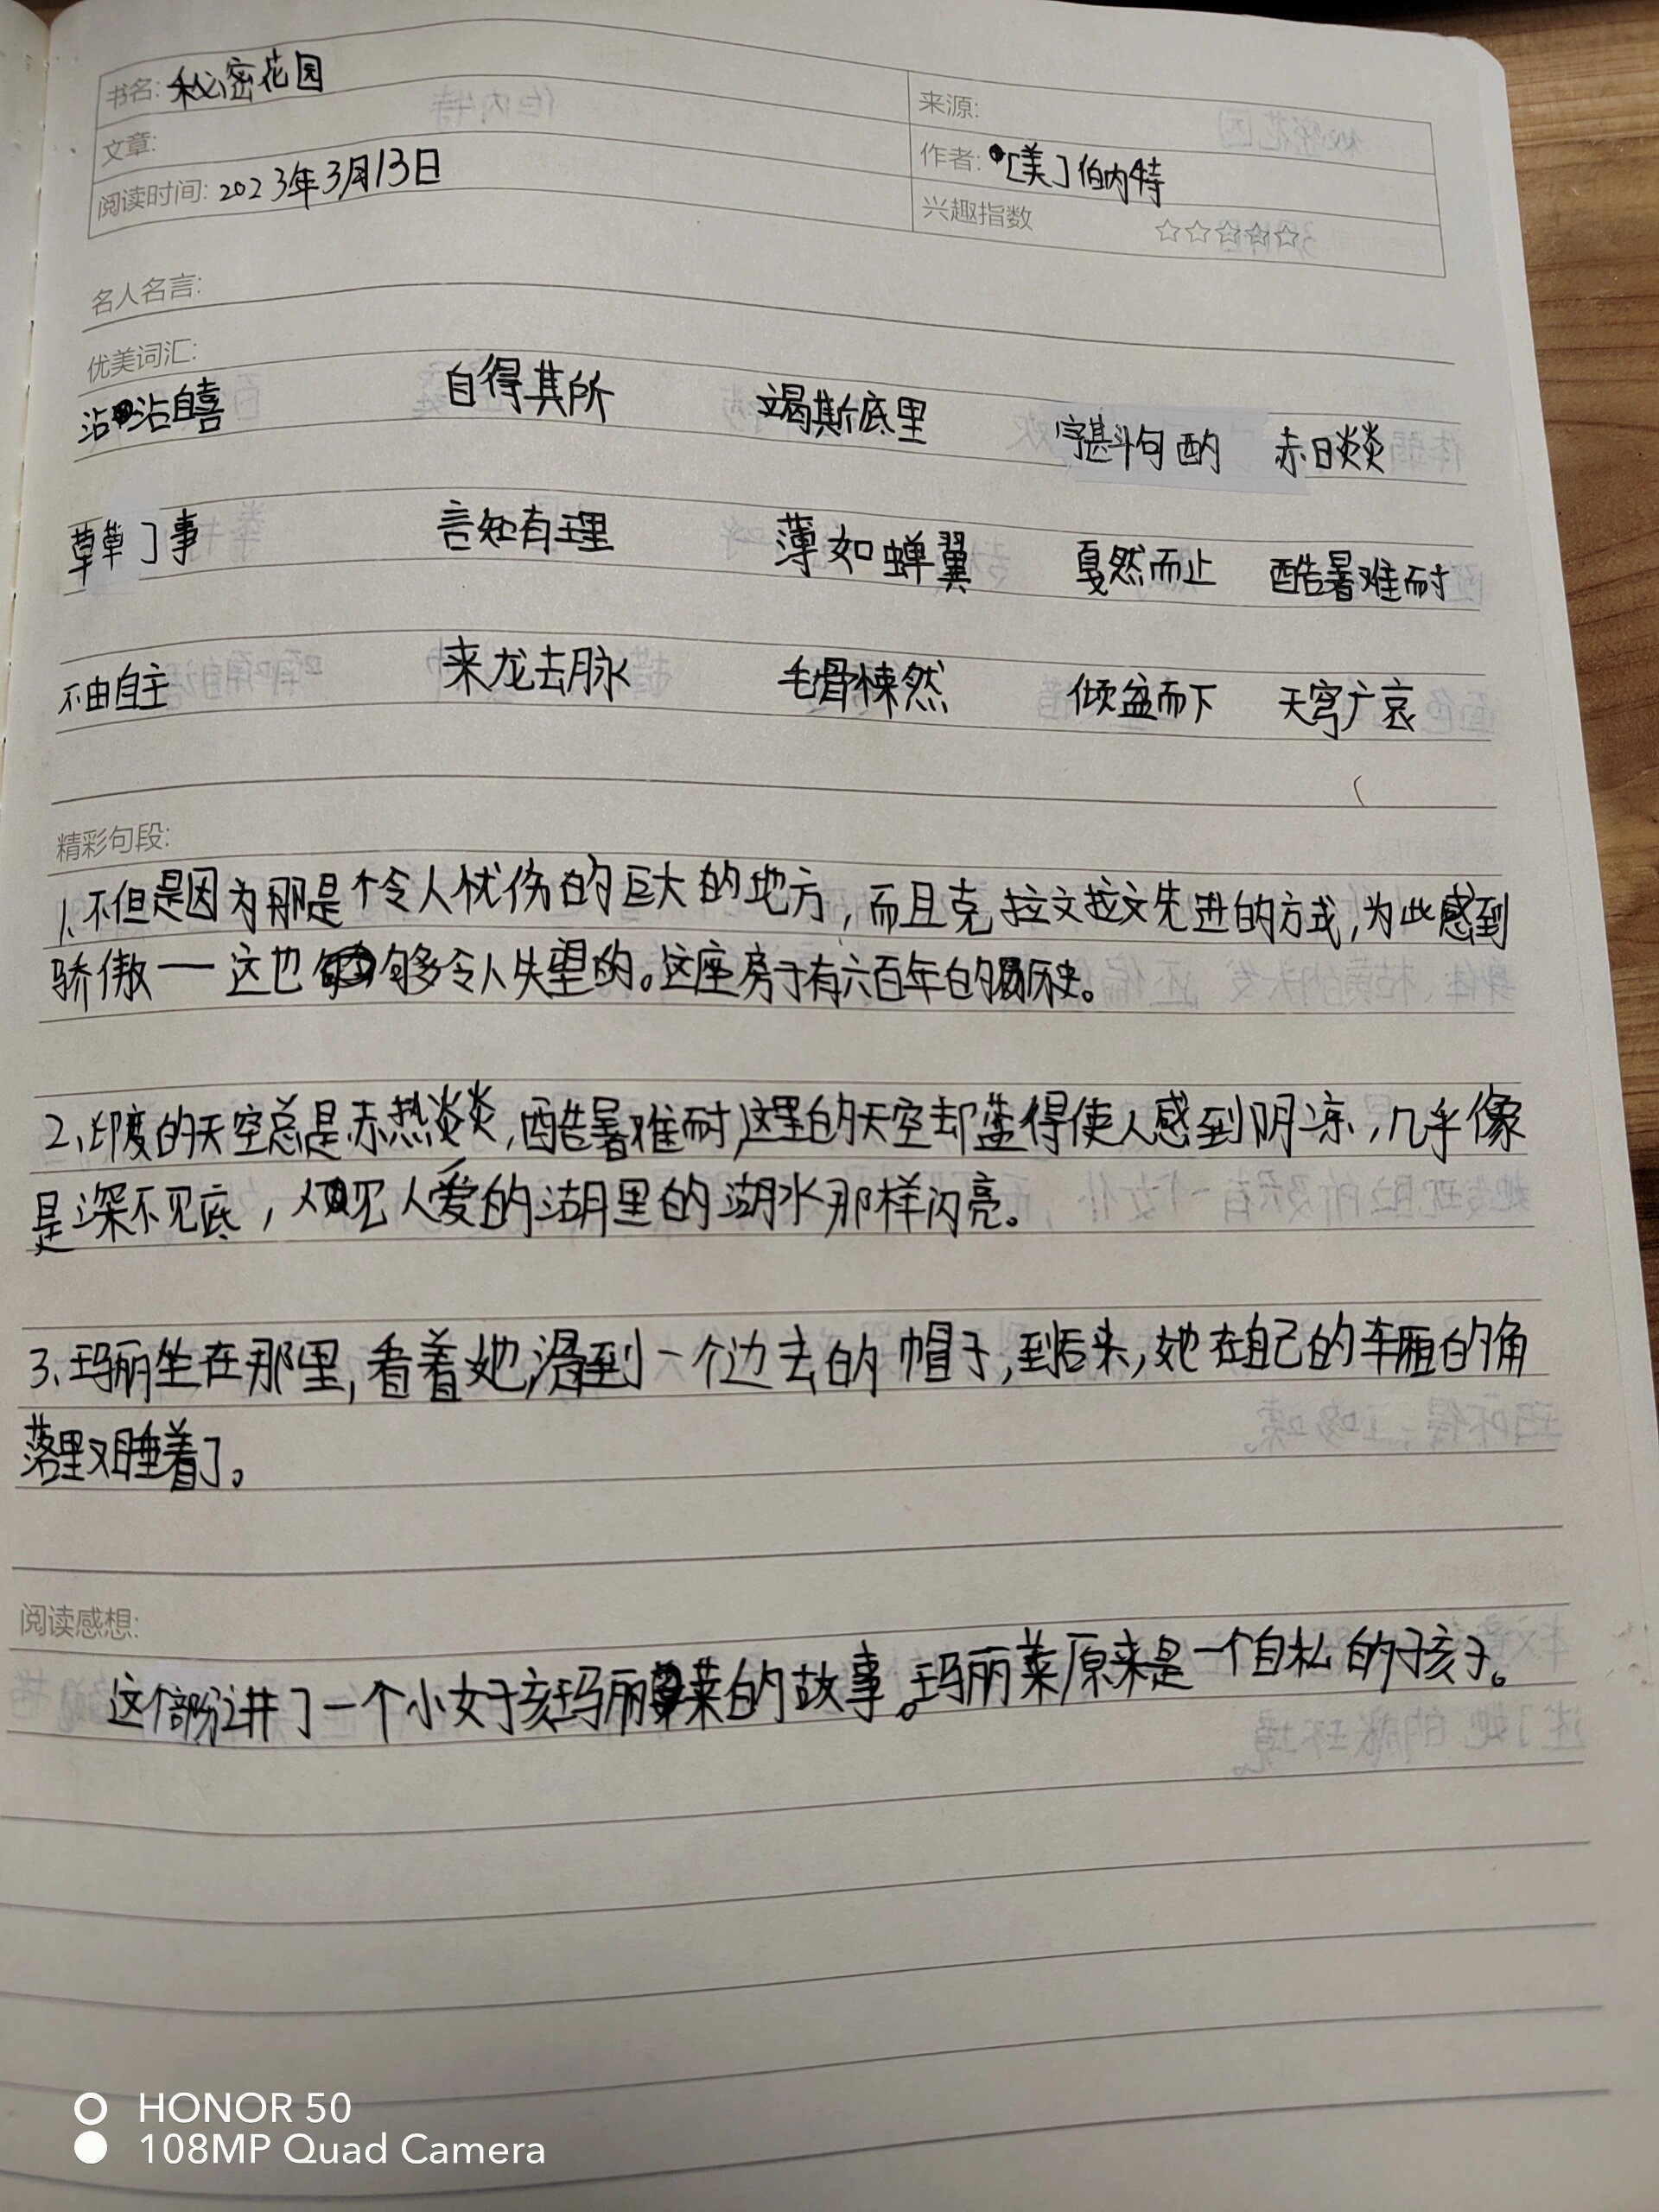 书名: 秘密花园
来源:
文章:
作者: [美]伯内特
阅读时间: 2023年3月13日
兴趣指数 ☆☆☆☆☆
名人名言:
优美词汇:
沾沾自喜 自得其所 竭斯底里 字斟句酌 赤日炎炎
草草了事 言知有理 薄如蝉翼 戛然而止 酷暑难耐
不由自主 来龙去脉 毛骨悚然 倾盆而下 天穹广袤
精彩句段:
1、不但是因为那是个令人忧伤的巨大的地方,而且克拉文拉文先进的方式,为此感到
骄傲——这也够令人失望的。这座房子有六百年的历史。
2、印度的天空总是赤热炎炎,酷暑难耐,这里的天空却蓝得使人感到阴凉,几乎像
是深不见底,人见人爱的湖里的湖水那样闪亮。
3、玛丽坐在那里,看着她滑到一个边去的帽子,到后来,她在自己的车厢的角
落里又睡着了。
阅读感想:
这个部分讲了一个小女孩玛丽莱的故事。玛丽莱原来是一个自私的孩子。
HONOR 50
108MP Quad Camera